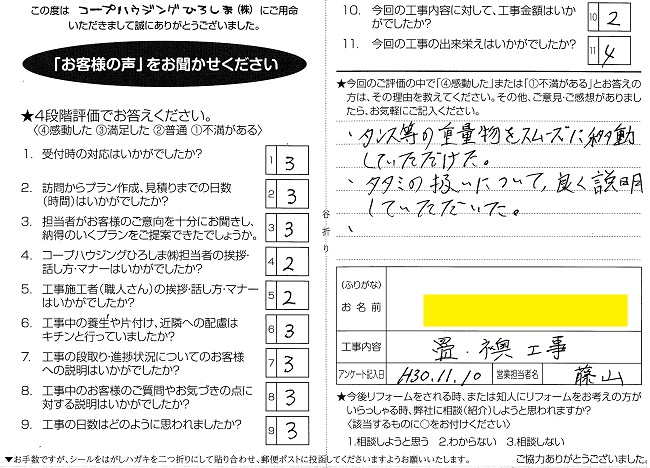 この度は コープハウジングひろしま(株) にご用命
いただきまして誠にありがとうございました。
「お客様の声」をお聞かせください
★4段階評価でお答えください。
〈④感動した ③満足した ②普通 ①不満がある〉
1. 受付時の対応はいかがでしたか?
1 3
2. 訪問からプラン作成、見積りまでの日数
(時間)はいかがでしたか?
2 3
3. 担当者がお客様のご意向を十分にお聞きし、
納得のいくプランをご提案できたでしょうか。
3 3
4. コープハウジングひろしま㈱担当者の挨拶・
話し方・マナーはいかがでしたか?
4 2
5. 工事施工者(職人さん)の挨拶・話し方・マナー
はいかがでしたか?
5 2
6. 工事中の養生や片付け、近隣への配慮は
キチンと行っていましたか?
6 3
7. 工事の段取り・進捗状況についてのお客様
への説明はいかがでしたか?
7 3
8. 工事中のお客様のご質問やお気づきの点に
対する説明はいかがでしたか?
8 3
9. 工事の日数はどのように思われましたか?
9 3
▼お手数ですが、シールをはがしハガキを二つ折りにして貼り合わせ、郵便ポストに投函してくださいますようお願いいたします。
谷折り
10. 今回の工事内容に対して、工事金額はいか
がでしたか?
10 2
11. 今回の工事の出来栄えはいかがでしたか?
11 4
★今回のご評価の中で「④感動した」または「①不満がある」とお答えの
方は、その理由を教えてください。その他、ご意見・ご感想がありまし
たら、お気軽にご記入ください。
・タンス等の重量物をスムーズに移動
していただけた。
・タタミの扱いについて、良く説明
していただいた。
・
(ふりがな)
お名前
工事内容 畳・襖工事
アンケート記入日 H30.11.10 営業担当者名 藤山
★今後リフォームをされる時、または知人にリフォームをお考えの方が
いらっしゃる時、弊社に相談(紹介)しようと思われますか?
〈該当するものに○をお付けください〉
1.相談しようと思う 2.わからない 3.相談しない
ご協力ありがとうございました。